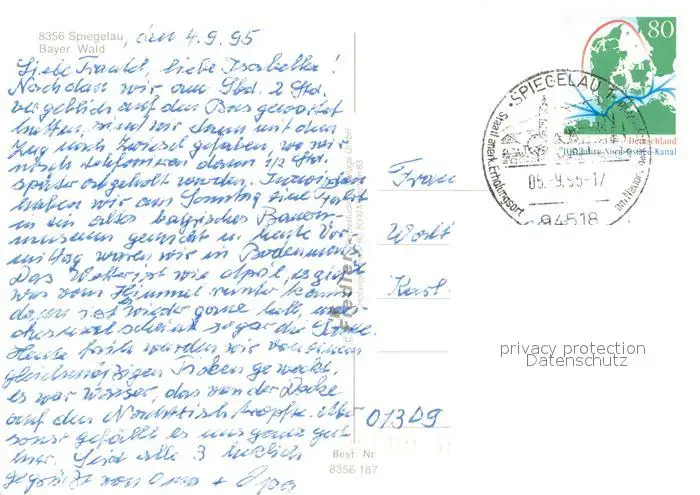 8356 Spiegelau
Bayer. Wald
, den 4.9.95
Liebe Traudl, liebe Isabella!
Nachdem wir am Sbd. 2 Std.
vergeblich auf den Bus gewartet
hatten, sind wir dann mit dem
Zug nach Zwiesel gefahren, wo wir
telefonierten dann 1/2 Std.
später abgeholt wurden. Inzwischen
haben wir am Sonntag eine Fahrt
in ein altes bayrisches Bauern-
museum gemacht u. heute Vor-
mittag waren wir in Bodenmais.
Das Wetter ist wie April, es gießt
was vom Himmel runter kann
dann ist wieder ganz hell, und
manchesmal scheint sogar die Sonne.
Heute früh wurden wir von einem
gleichmäßigen Tropfen geweckt,
es war Wasser, das von der Decke
auf den Nachttisch tropfte. Aber
sonst gefällt es uns ganz gut
hier. Seid alle 3 herzlich
gegrüßt von Oma + Opa
Frau
Karl-
01309
Best. Nr
8356 187
Fiedler
80
Deutschland
100 Jahre Nord-Ostsee-Kanal
SPIEGELAU 1
Staatl. anerk. Erholungsort
05.-9.95-17
94518
privacy protection
Datenschutz